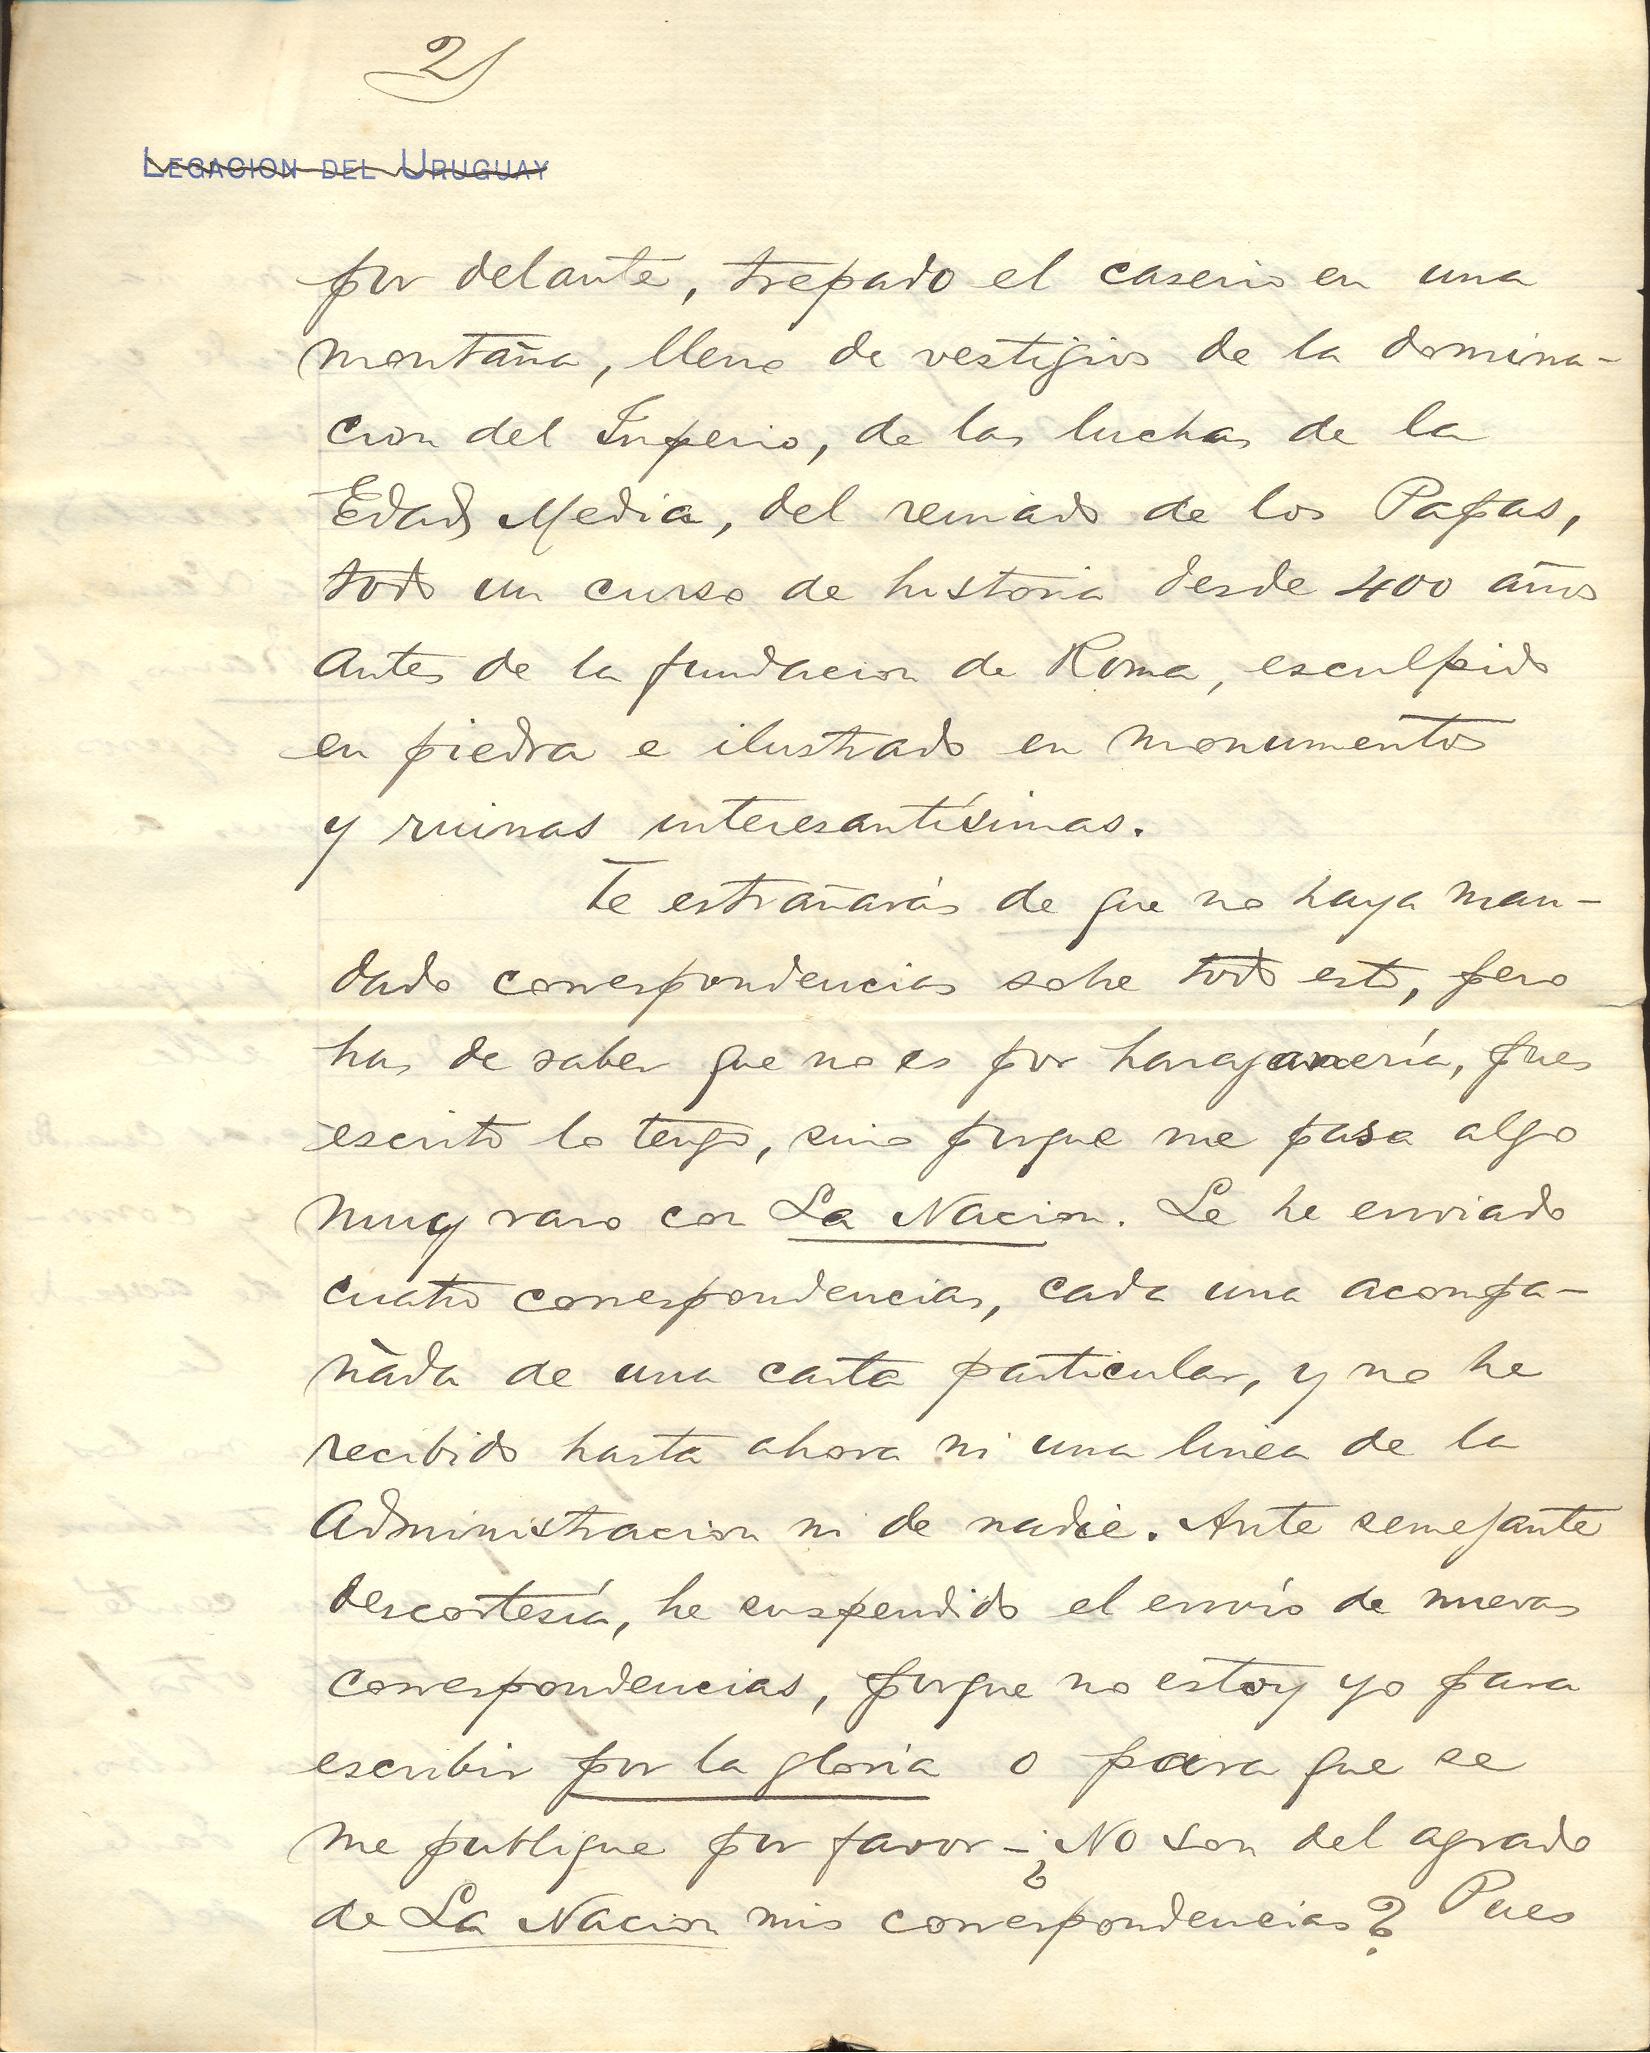 2
LEGACION DEL URUGUAY
por delante, trepado el caserio en una
montaña, lleno de vestigios de la domina-
cion del Imperio, de las luchas de la
Edad Media, del reinado de los Papas,
todo un curso de historia desde 400 años
antes de la fundacion de Roma, esculpido
en piedra e ilustrado en monumentos
y ruinas interesantísimas.
Te estrañarás de que no haya man-
dado correspondencias sobre todo esto, pero
has de saber que no es por haraganería, pues
escrito lo tengo, sino porque me pasa algo
muy raro con La Nacion. Le he enviado
cuatro correspondencias, cada una acompa-
ñada de una carta particular, y no he
recibido hasta ahora ni una linea de la
Administracion ni de nadie. Ante semejante
descortesía, he suspendido el envío de nuevas
correspondencias, porque no estoy yo para
escribir por la gloria o para que se
me publique por favor - ¿No son del agrado
de La Nacion mis correspondencias? Pues